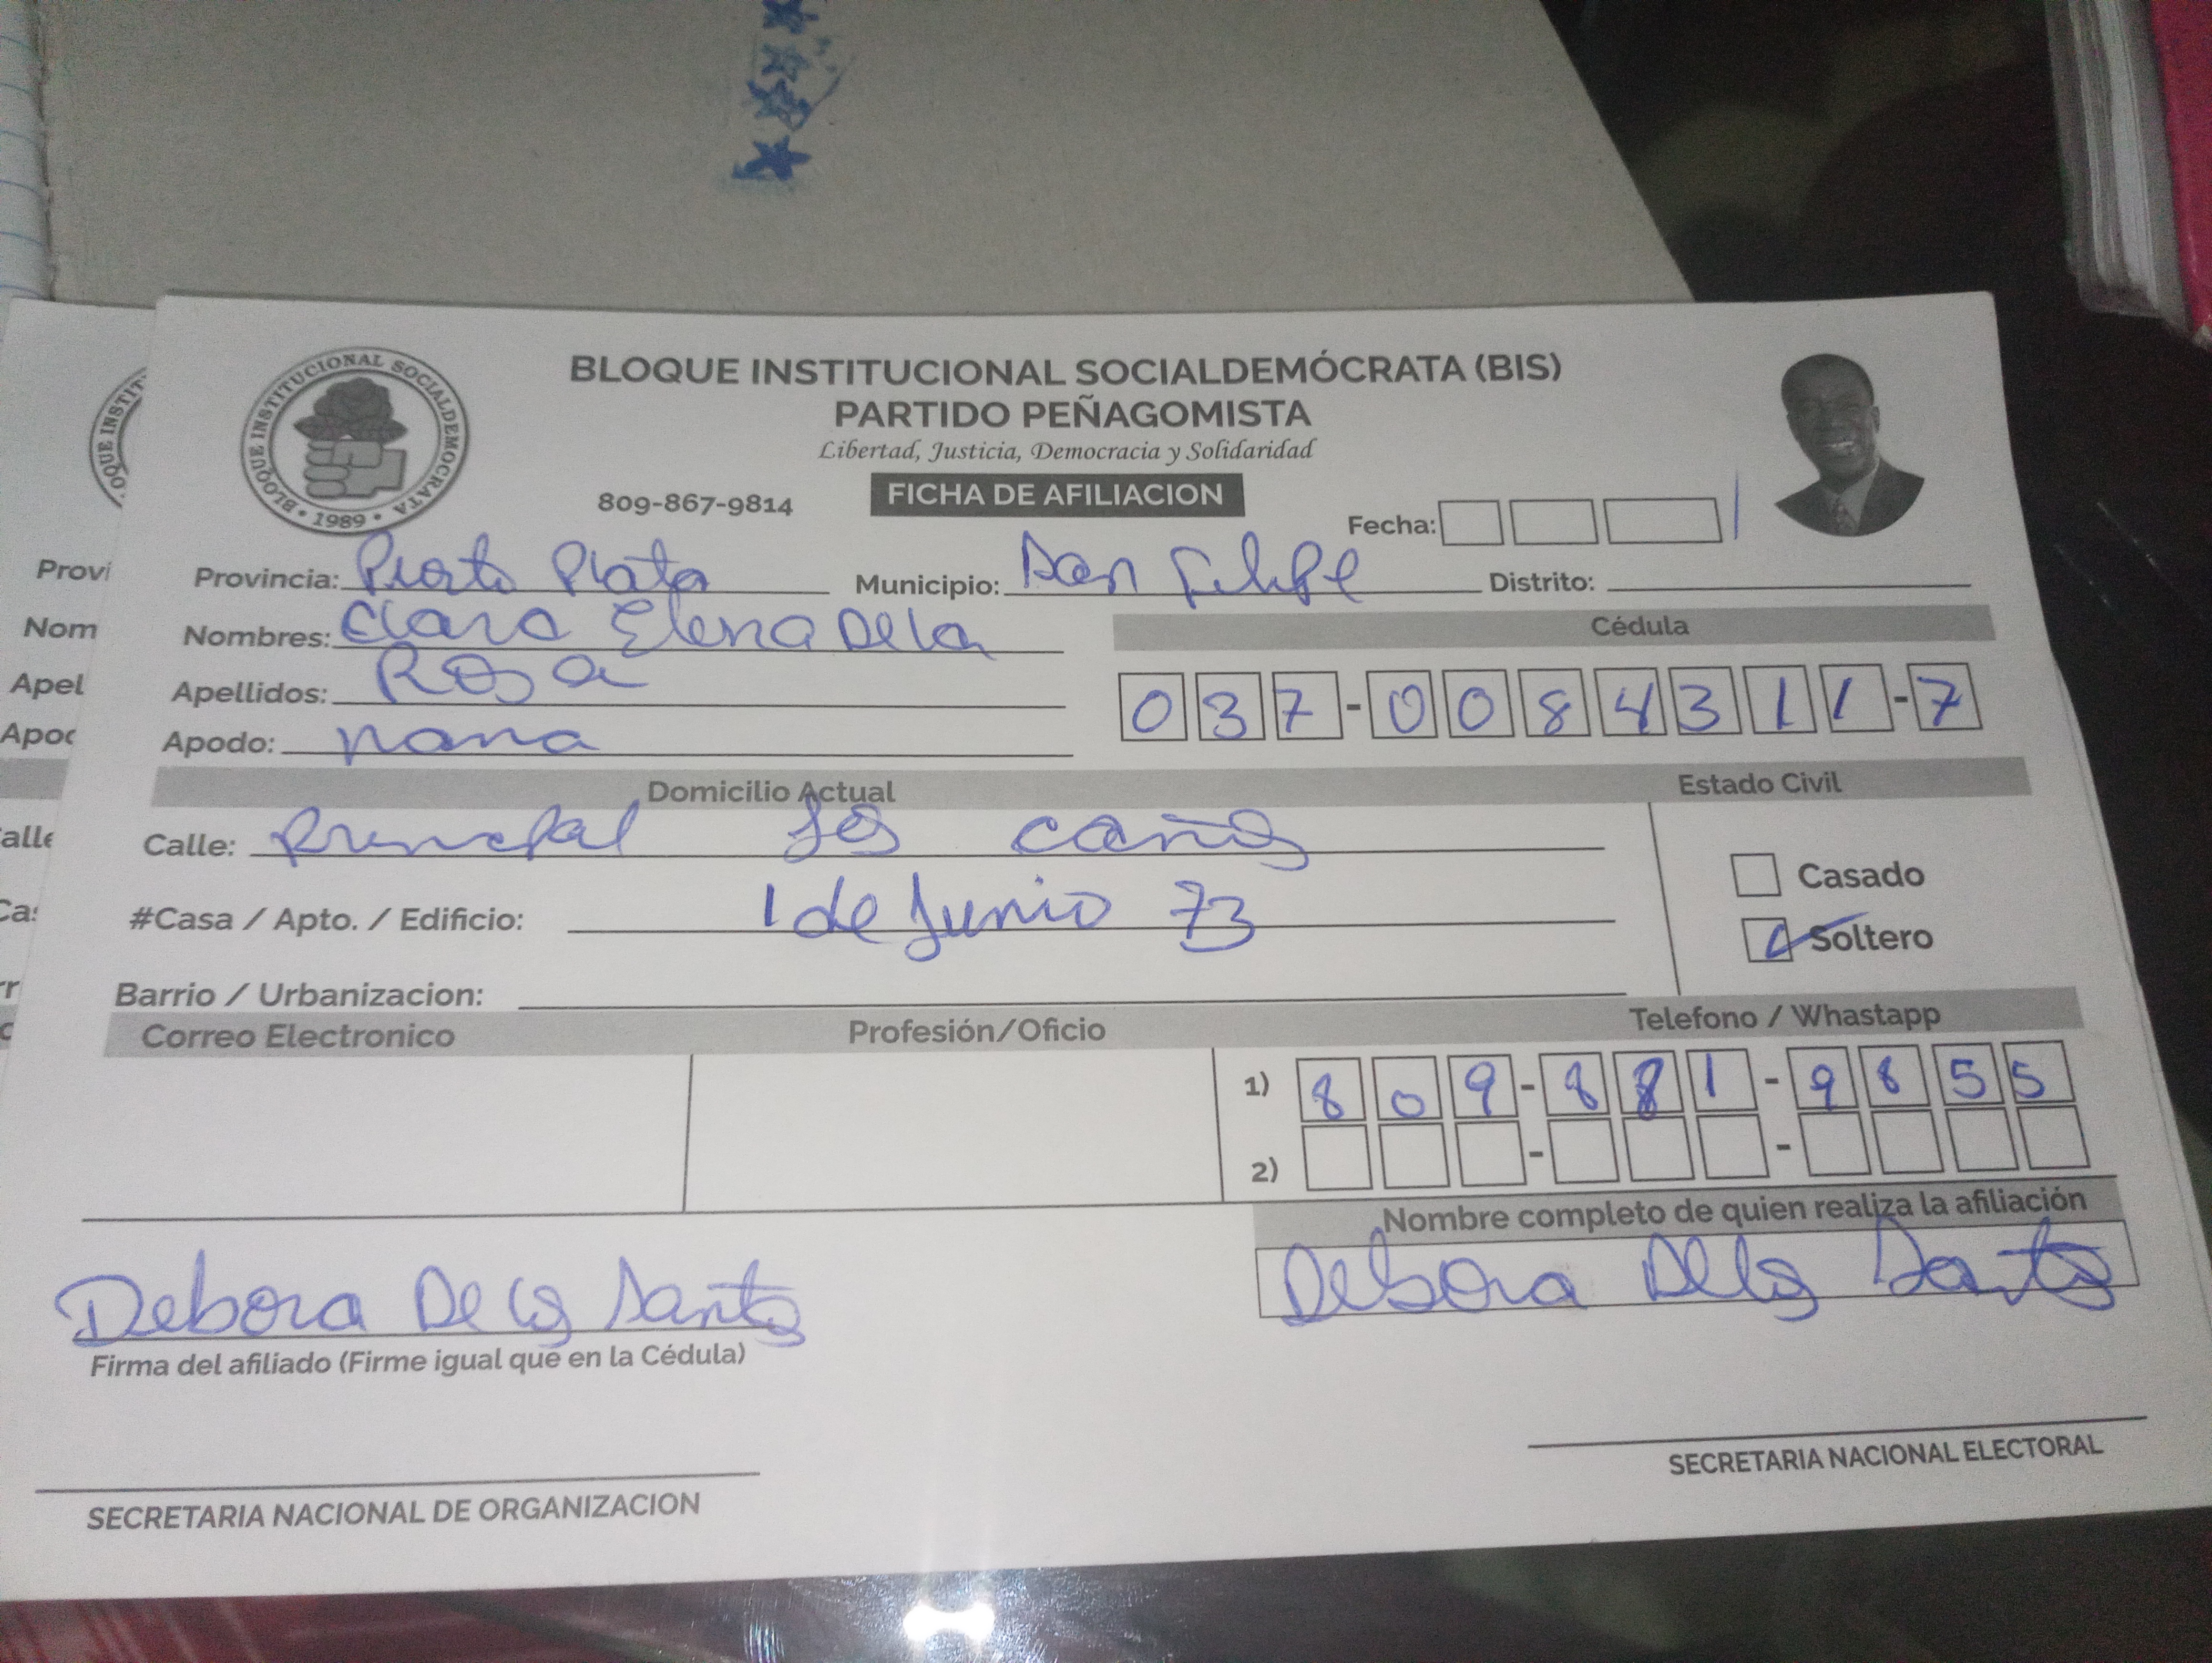 BLOQUE INSTITUCIONAL SOCIALDEMÓCRATA (BIS)
PARTIDO PEÑAGOMISTA
Libertad, Justicia, Democracia y Solidaridad
BLOQUE INSTITUCIONAL SOCIALDEMOCRATA • 1989 •
809-867-9814 FICHA DE AFILIACION Fecha:
Provincia: Puerto Plata Municipio: San Felipe Distrito:
Nombres: Clara Elena De la Cédula
Apellidos: Rosa 037-0084311-7
Apodo: nana
Domicilio Actual Estado Civil
Calle: Principal los caños
Casado
#Casa / Apto. / Edificio: 1 de Junio 73
Soltero
Barrio / Urbanizacion:
Correo Electronico Profesión/Oficio Telefono / Whastapp
1) 809-881-9855
2) - -
Nombre completo de quien realiza la afiliación
Debora De los Santos Debora De los Santos
Firma del afiliado (Firme igual que en la Cédula)
SECRETARIA NACIONAL DE ORGANIZACION SECRETARIA NACIONAL ELECTORAL
OQUE INSTIT
Provi
Nom
Apel
Apod
alle
Ca